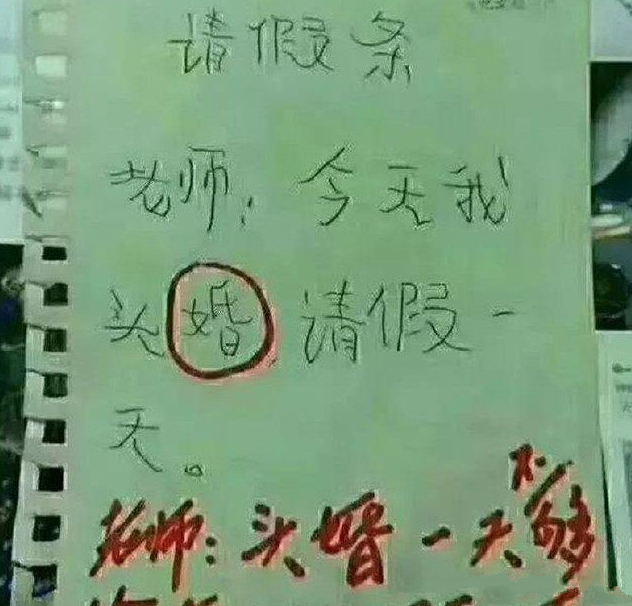 请假条
老师：今天我
头婚请假一
天。
老师：头婚一天不够